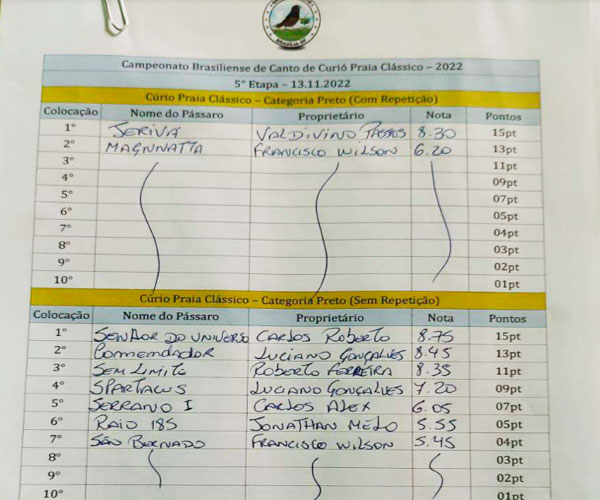 BRASÍLIA-DF
Campeonato Brasiliense de Canto de Curió Praia Clássico – 2022
5ª Etapa – 13.11.2022
Cúrio Praia Clássico – Categoria Preto (Com Repetição)
Colocação Nome do Pássaro Proprietário Nota Pontos
1º JERIVÁ VALDIVINO PASSOS 8.30 15pt
2º MAGNNATTA FRANCISCO WILSON 6.20 13pt
3º 11pt
4º 09pt
5º 07pt
6º 05pt
7º 04pt
8º 03pt
9º 02pt
10º 01pt
Cúrio Praia Clássico – Categoria Preto (Sem Repetição)
Colocação Nome do Pássaro Proprietário Nota Pontos
1º SENHOR DO UNIVERSO CARLOS ROBERTO 8.75 15pt
2º COMENDADOR LUCIANO GONÇALVES 8.45 13pt
3º SEM LIMITE ROBERTO FERREIRA 8.35 11pt
4º SPARTACUS LUCIANO GONÇALVES 7.20 09pt
5º SERRANO I CARLOS ALEX 6.05 07pt
6º RAIO 185 JONATHAN MELO 5.55 05pt
7º SÃO BERNADO FRANCISCO WILSON 5.45 04pt
8º 03pt
9º 02pt
10º 01pt